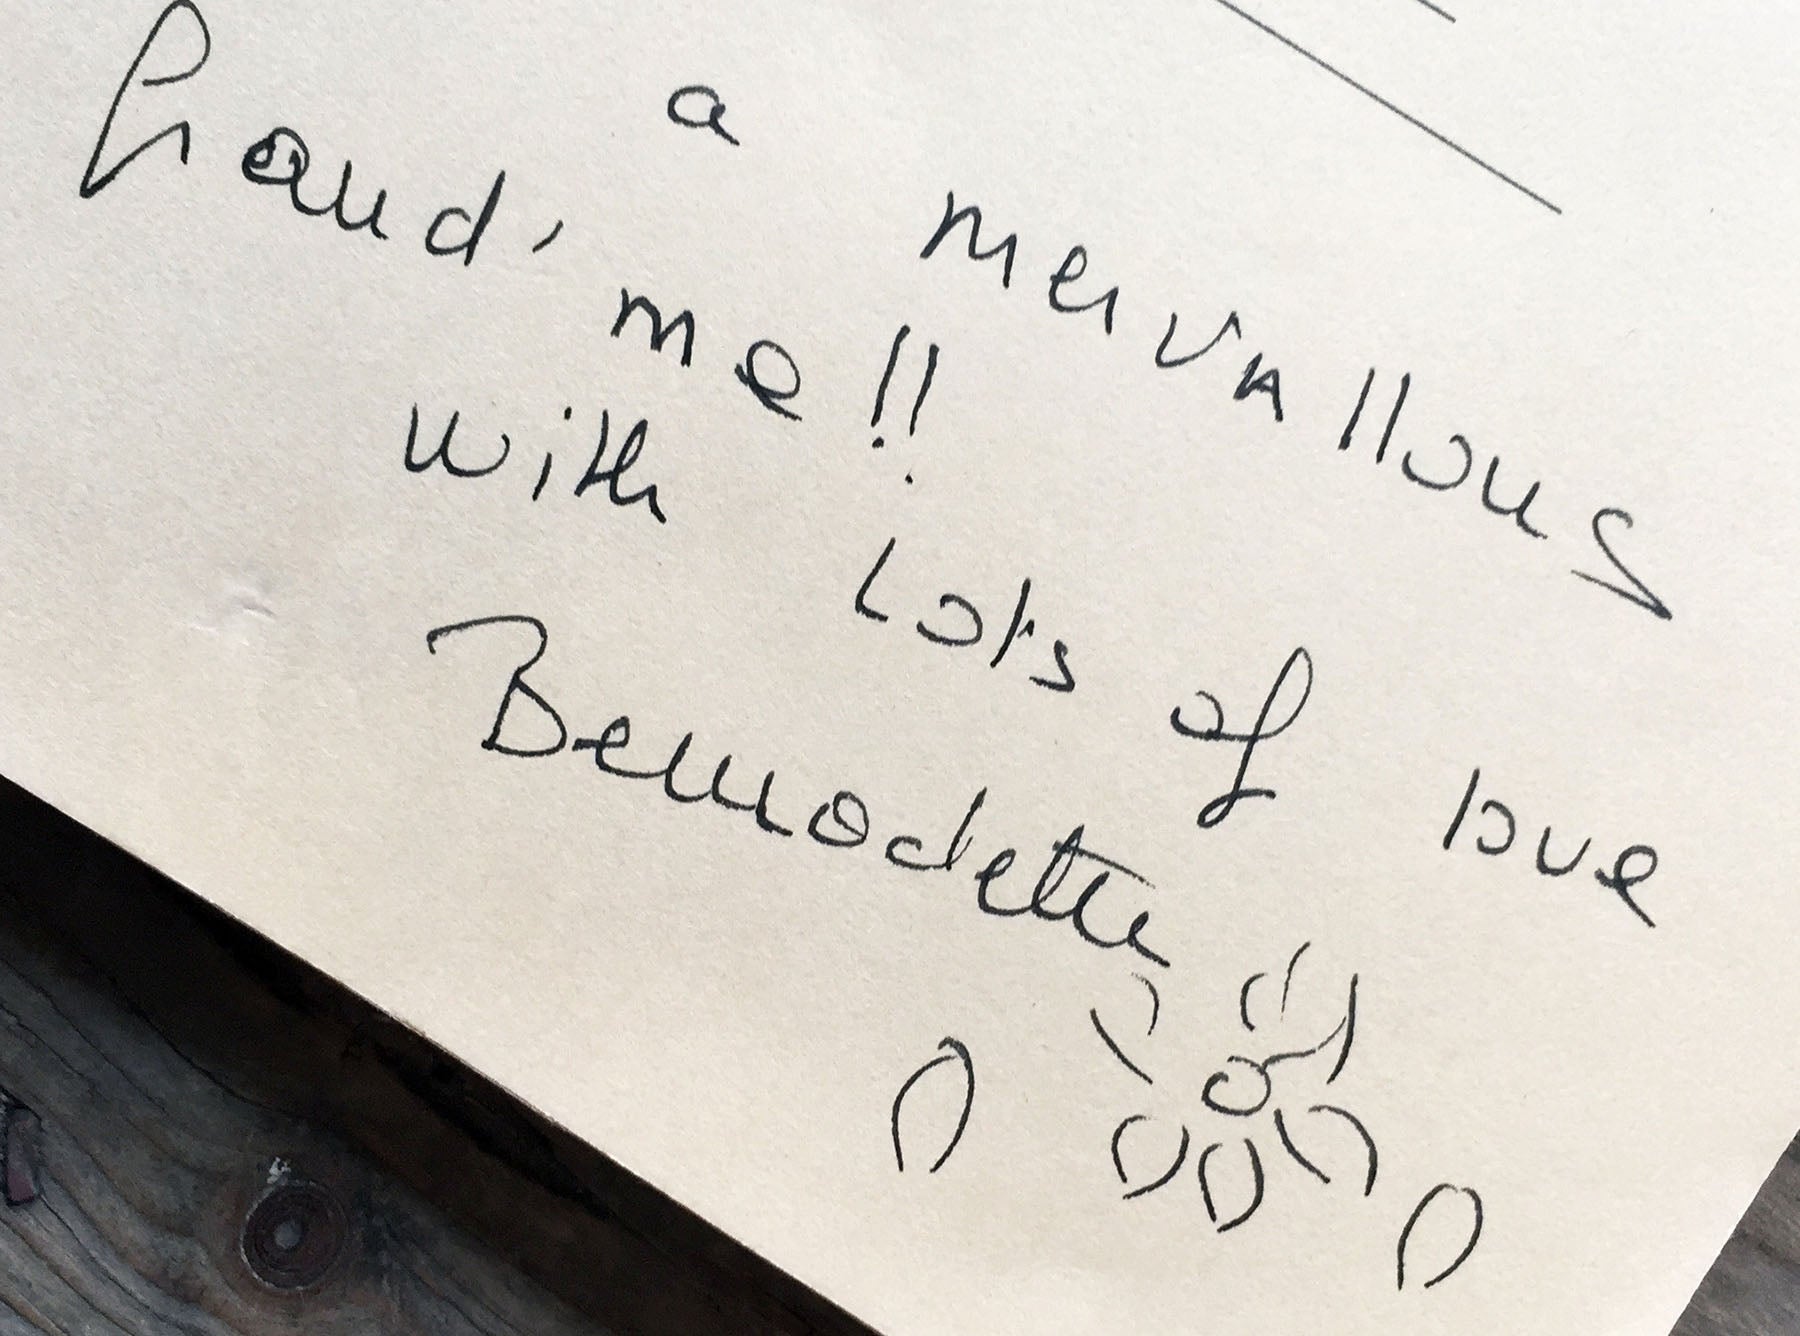 a mervallous
hand' me!!
with lots of love
Bernadette